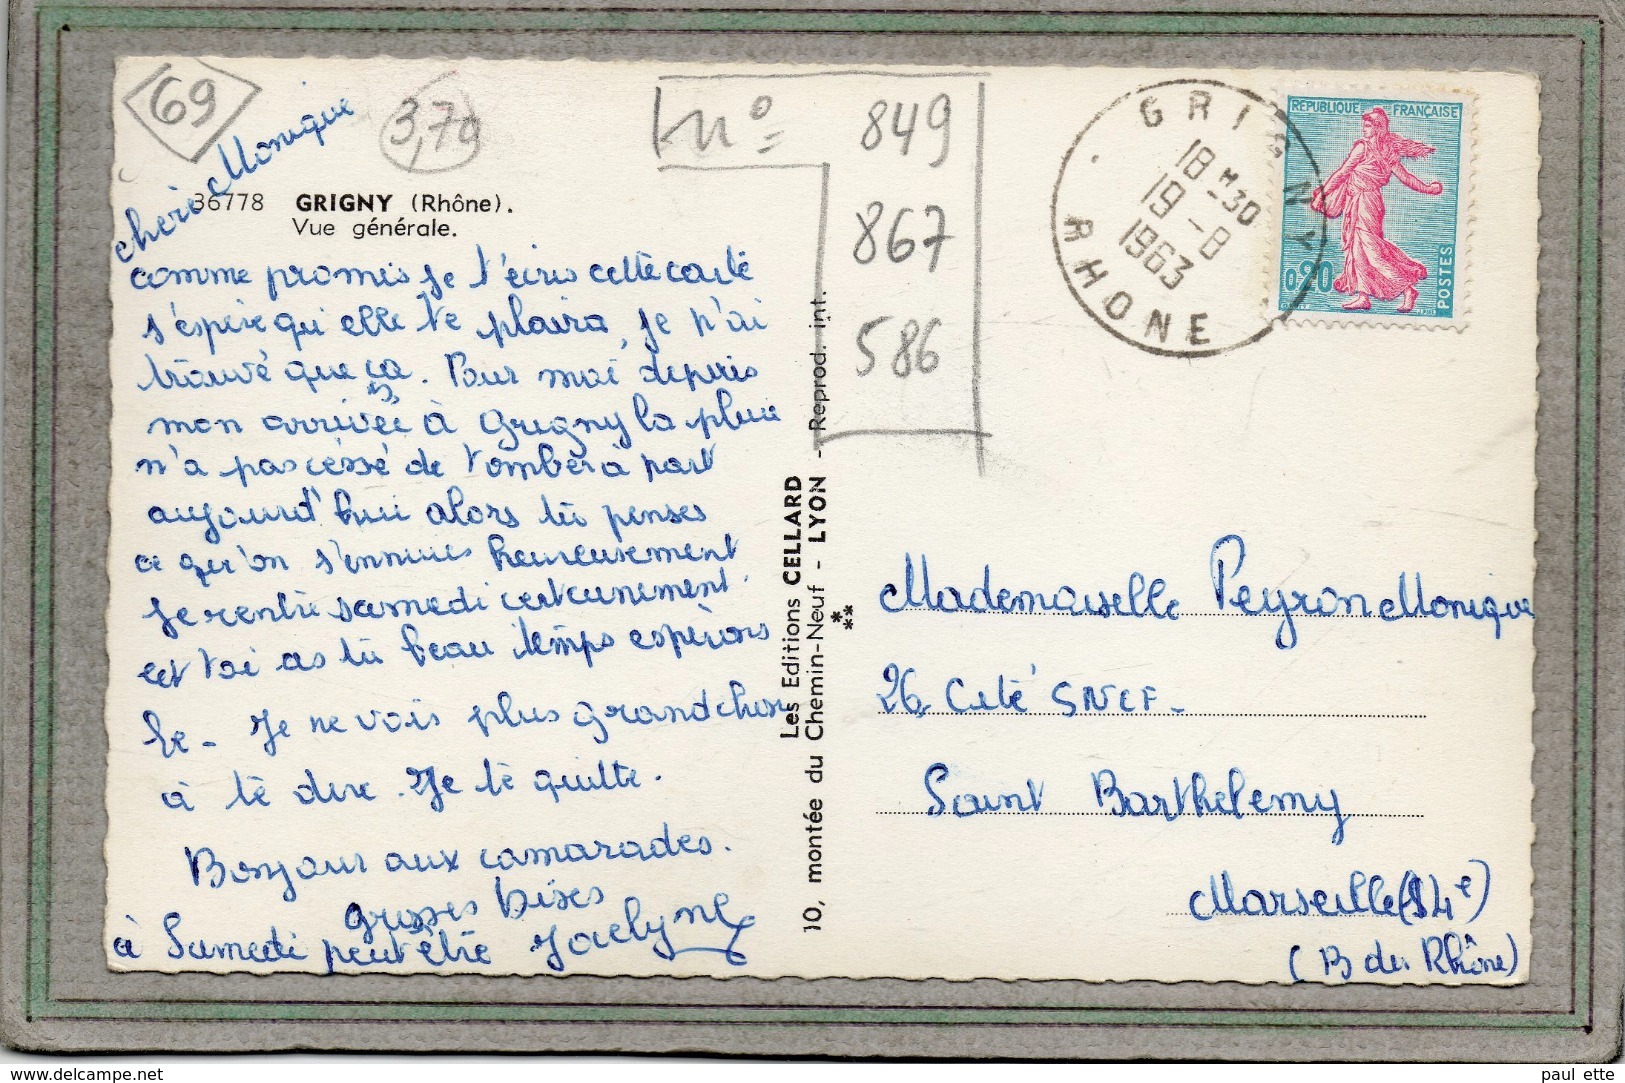 69
3,70
n°
849
867
586
36778 GRIGNY (Rhône).
Vue générale.
chère Monique
comme promis je t'écris cette carte
j'espère qu'elle te plaira je n'ai
trouvé que ça. Pour moi depuis
mon arrivée à Grigny la pluie
n'a pas cessé de tomber à part
aujourd'hui alors tu penses
ce qu'on s'ennuies heureusement
je rentre samedi certainement.
et toi as tu beau temps espérons
le - Je ne vois plus grand chose
à te dire. Je te quitte.
Bonjour aux camarades.
grosses bises
à Samedi peut être Jocelyne
Les Editions CELLARD
10, montée du Chemin-Neuf - LYON - Reprod. int.
GRIGNY
18 H 30
19 - 8
1963
RHONE
REPUBLIQUE FRANÇAISE
0,20
POSTES
Mademoiselle Peyron Monique
26 Cité SNCF -
Saint Barthelemy
Marseille (14e)
(B du Rhône)
www.delcampe.net
paul ette